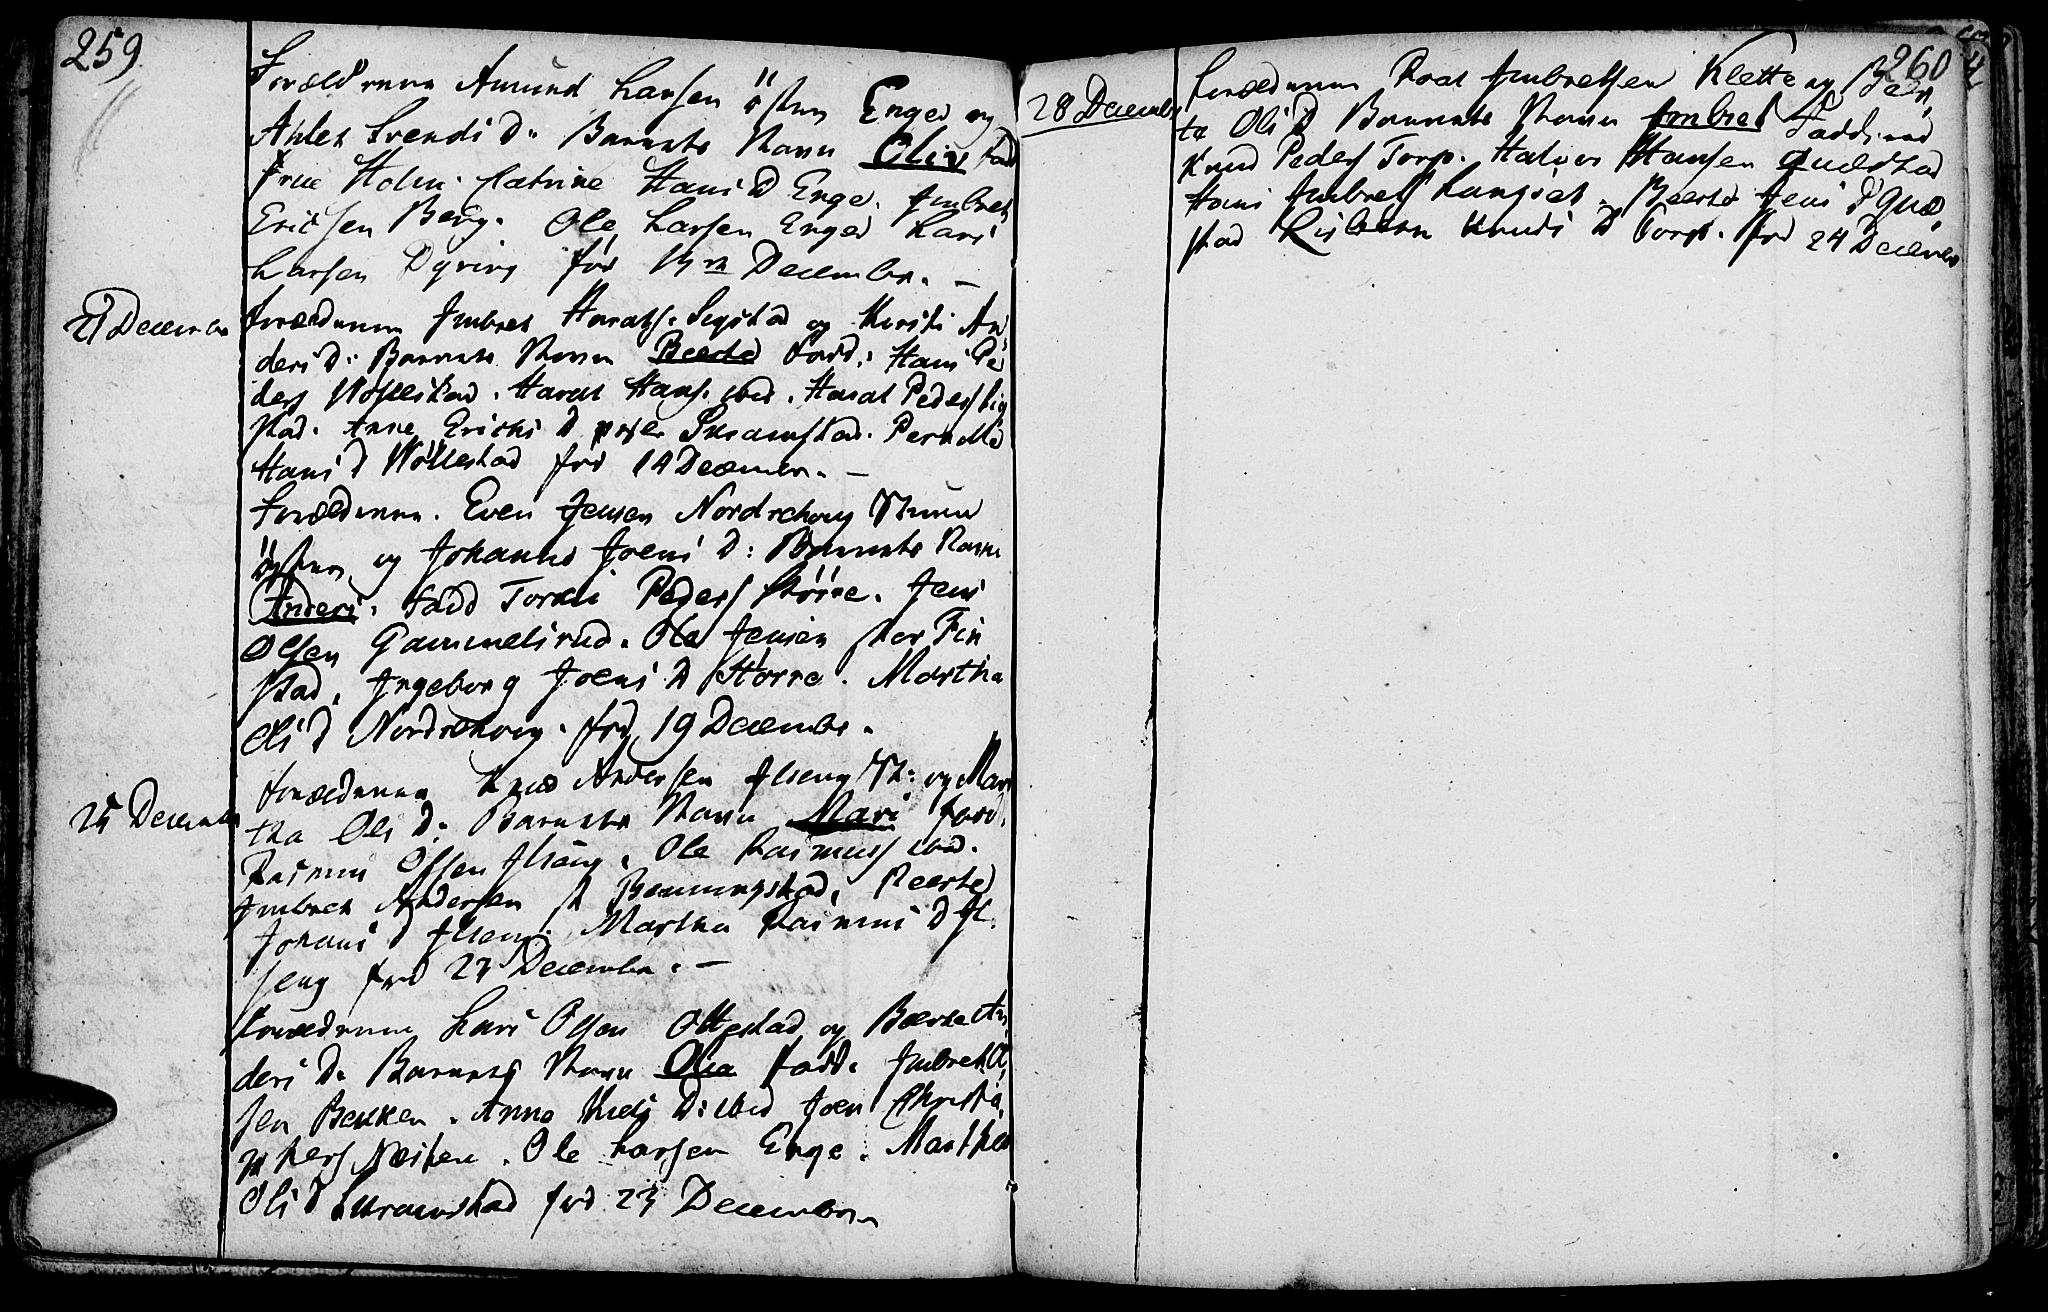 259.
Forældrene Amund Larsen östen Enger og
Ahlet Svends D. Barnets Navn Oliv Fad
Frue Holm. Catrine Hans D Enge. Jmbret
Ericksen Berg. Ole Larsen Enger Lars
Larsen Dyring fød Decembr. —
21 December Forældrene Jmbret Haralds. Sigstad og Kirsti An
ders D: Barnets Navn Beerte Fadd: Hans Pe
ders Wöllestad. Harat Hans. ibid. Harat Peders Sig
stad. Anne Erichs D Skramstad. Pernelle
Hans D Wöllestad fød 14 Decembr. —
Forældrene. Even Jensen Nordrehoug
östen og Johanne Joens D: Barnets Navn
Anders. Fadd Peders Större. Jens
Olsen Gammelsrud. Ole Jensen Fin
stad. Jngeborg Joens D Större. Martha
Ols D Nordrehoug. fød 19 Decembr.
25 December Forældrene Knud Andersen Jlseng og Mar
tha Ols D. Barnets Navn Mari Fadd.
Rasmus Olsen Jlseng. Ole Rasmuss ibid.
Jmbret Andersen Benningstad. Beerte
Johans D Jlseng. Martha Rasmus D Jl
seng fød 23 Decembr. —
Forældrene Lars Olsen Ottestad og Bærte An
ders D. Barnets Navn Olia Fadd. Jmbret Ol
sen Bekken. Anne Niels D: ibid Joen Christo
phers Næsten. Ole Larsen Enge. Marthe
Ols D Skramstad fød 23 Decembr
260
28 December Forældrene Roal Jmbretsen Klette og Beer
te Ols D Barnets Navn Jmbret Fadderne
Knud Peders Torp. Halvor Hansen Quæstad
Hans Jmbrets Langset. Beerte Jens D Quæ
stad Lisbeth Knuds D Torp. fød 24 December